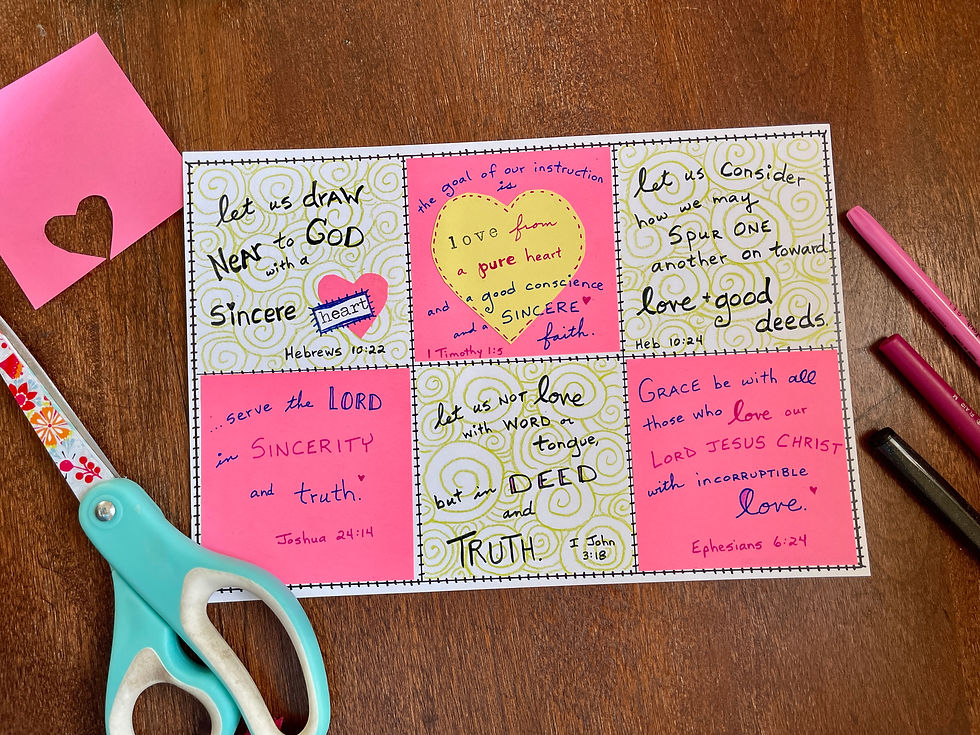 let us draw
Near to God
with a
Sincere heart
Hebrews 10:22
the goal of our instruction
is
love from
a pure heart
and a good conscience
and a SINCERE
faith.
1 Timothy 1:5
let us Consider
how we may
SPUR ONE
another on toward
love + good
deeds.
Heb 10:24
...serve the LORD
in SINCERITY
and truth.
Joshua 24:14
let us NOT love
with WORD or
tongue,
but in DEED
and
TRUTH.
I John
3:18
GRACE be with all
those who love our
LORD JESUS CHRIST
with INCORRUPTIBLE
love.
Ephesians 6:24